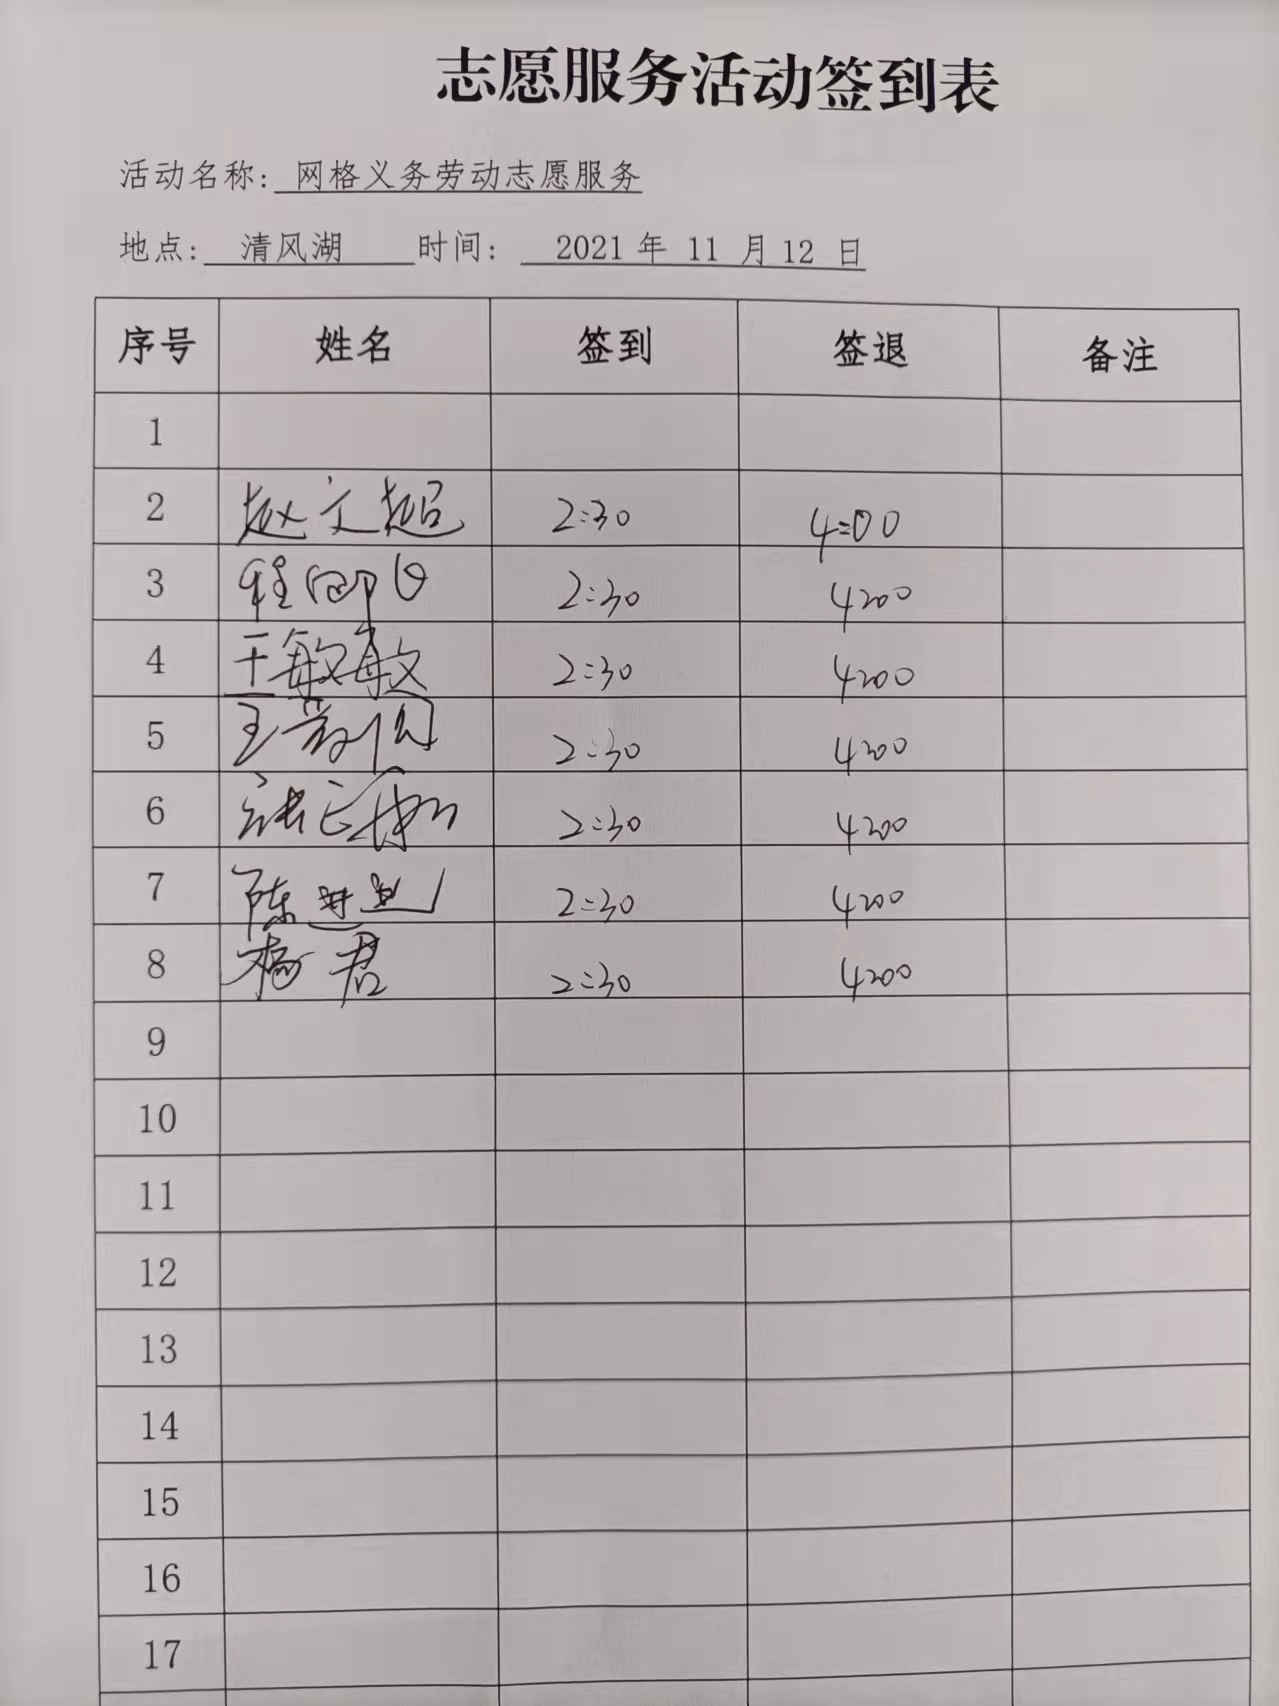 志愿服务活动签到表
活动名称: 网格义务劳动志愿服务
地点: 清风湖 时间: 2021 年 11 月 12 日
序号 姓名 签到 签退 备注
1
2 赵文超 2:30 4:00
3 2:30 4:00
4 王敏敏 2:30 4:00
5 2:30 4:00
6 2:30 4:00
7 陈进 2:30 4:00
8 杨君 2:30 4:00
9
10
11
12
13
14
15
16
17